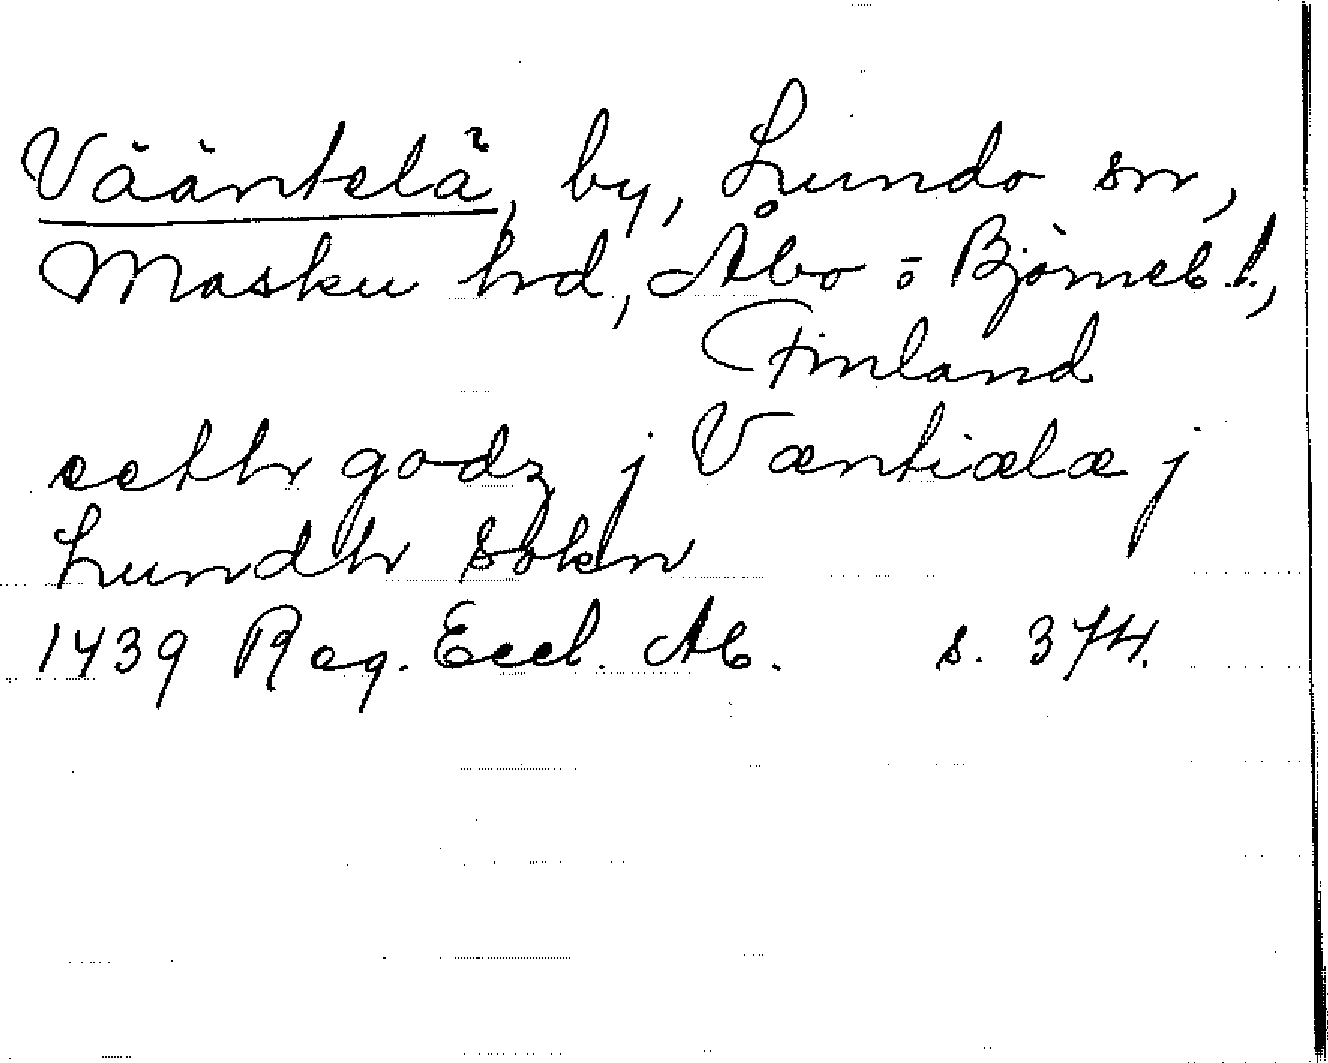 Vääntelä, by, Lundo sn,
Masku hd, Åbo-o Björneb. l.,
Finland
eettr godz j Væntiælæ j
Lundhr sokn
1439 Reg. Eccl. Ab. s. 374.